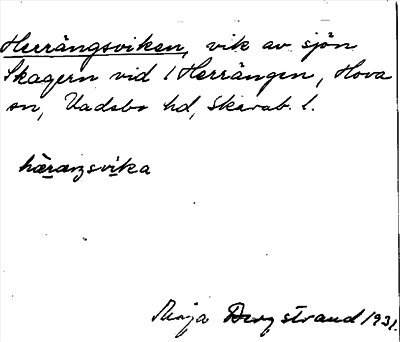 Herrängsviken, vik av sjön
Skagern vid 1 Herrängen, Hova
sn, Vadsbo hd, Skarab. l.
hàraŋsvika
Maja Bergstrand 1931.